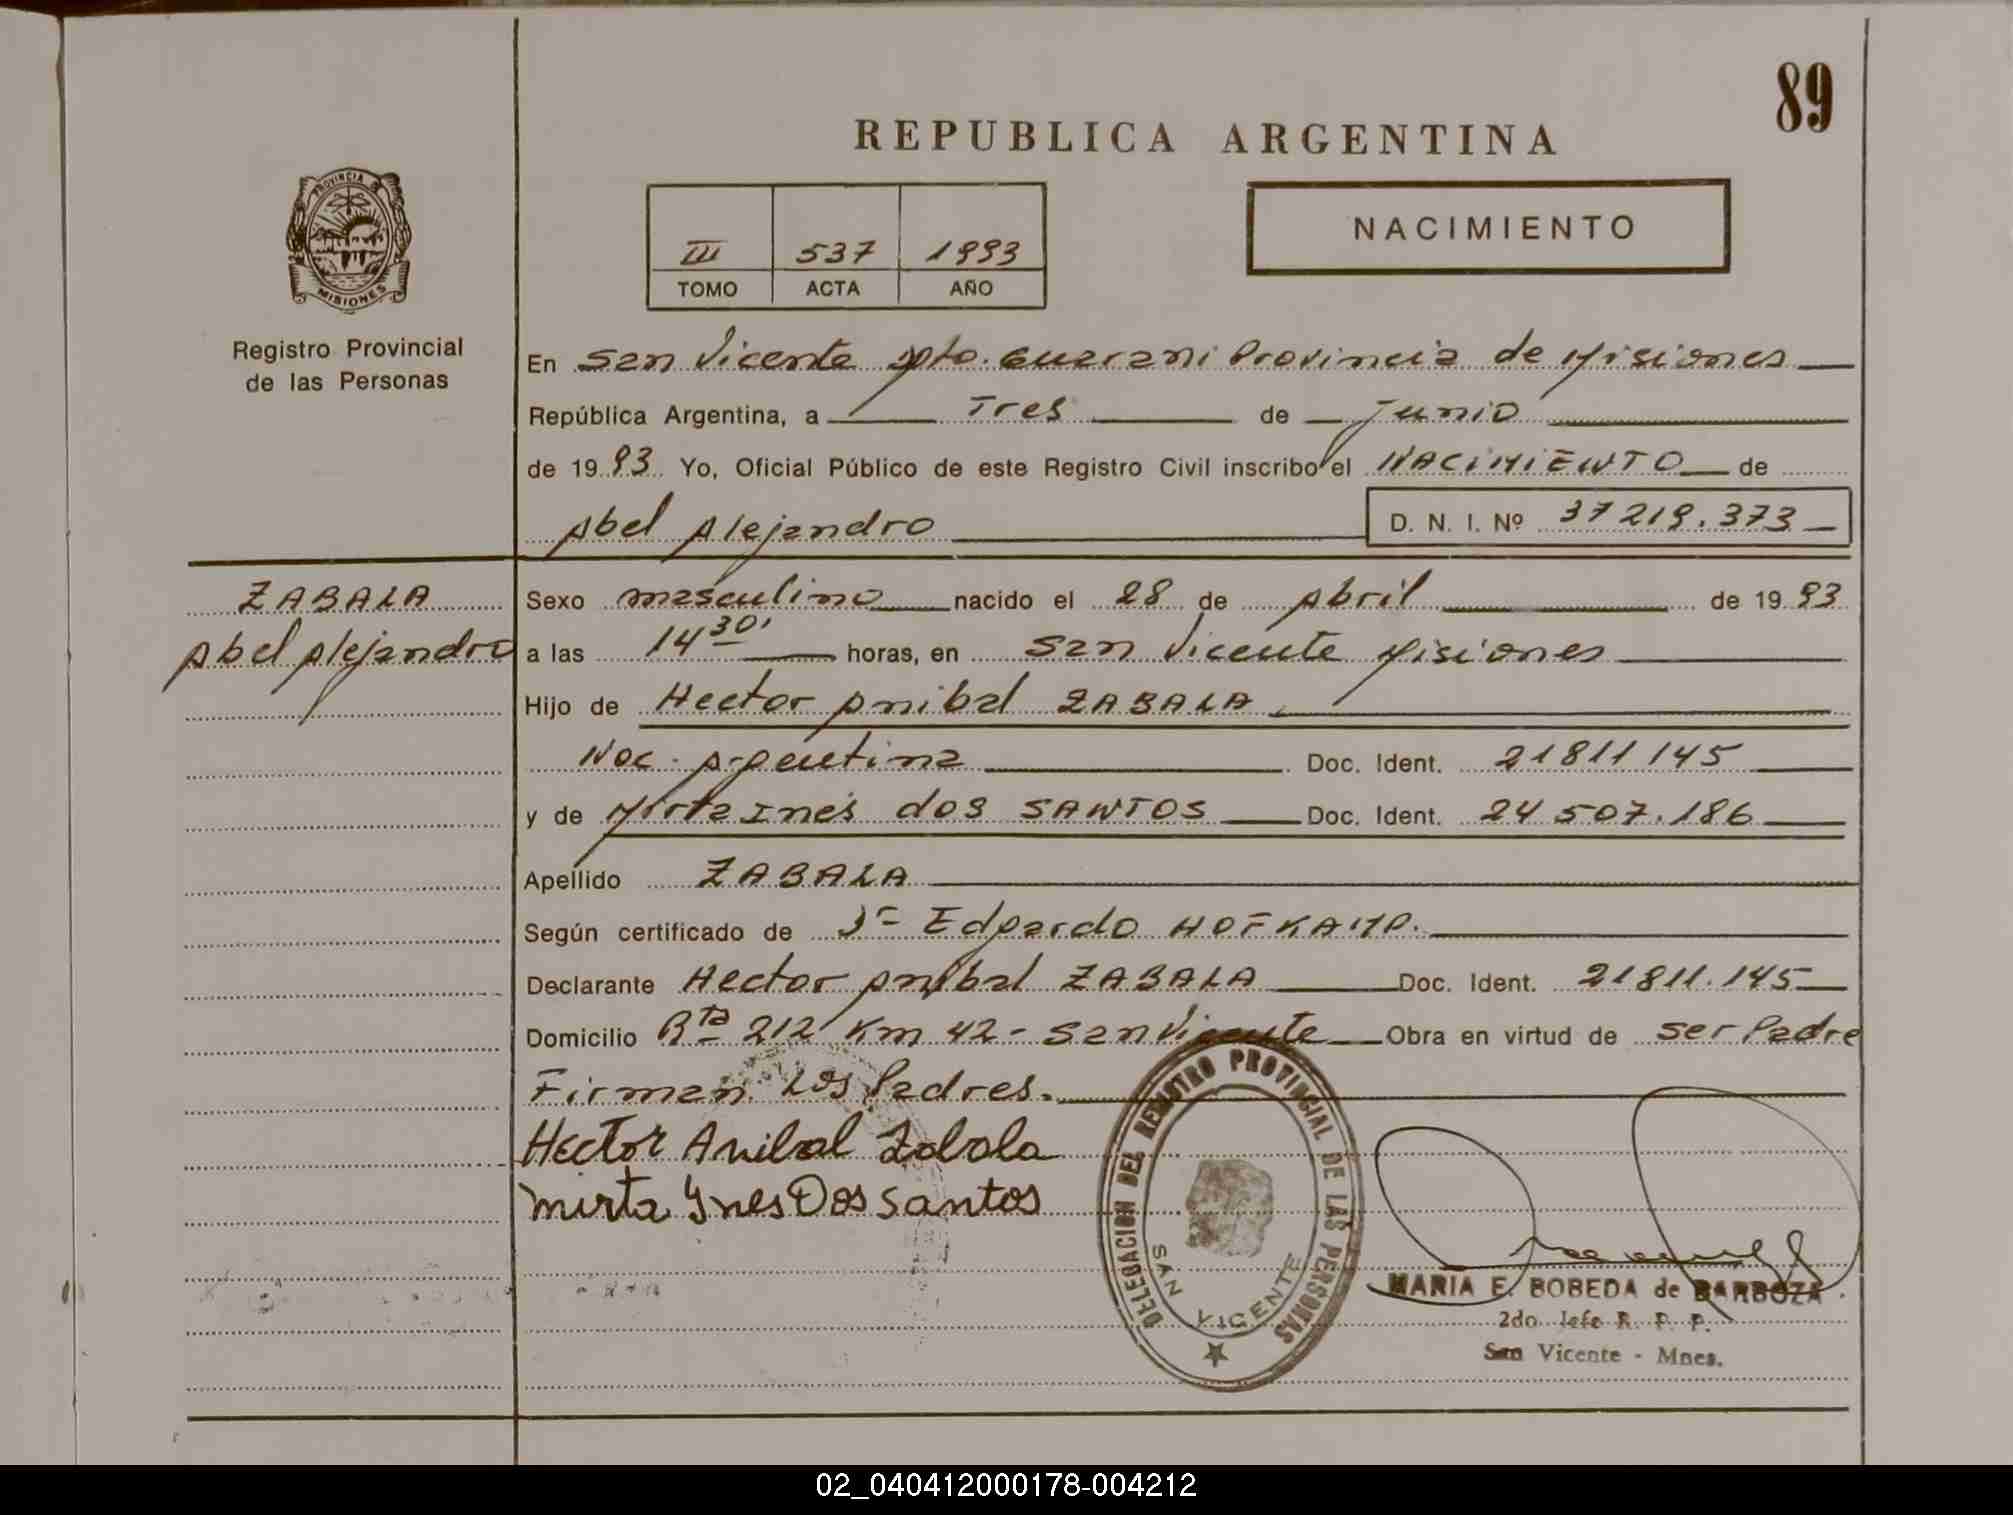 89
REPUBLICA ARGENTINA
PROVINCIA DE
MISIONES
Registro Provincial
de las Personas
III 537 1993
TOMO ACTA AÑO
NACIMIENTO
En San Vicente Dpto. Guarani Provincia de Misiones
República Argentina, a Tres de Junio
de 1993 Yo, Oficial Público de este Registro Civil inscribo el NACIMIENTO de
Abel Alejandro D. N. I. Nº 37219.373
ZABALA
Abel Alejandro
Sexo masculino nacido el 28 de Abril de 1993
a las 14 30' horas, en San Vicente Misiones
Hijo de Hector Anibal ZABALA
Nac. Argentina Doc. Ident. 21811145
y de Mirta Inés dos SANTOS Doc. Ident. 24 507.186
Apellido ZABALA
Según certificado de Dr Edgardo HOFKAMP.
Declarante Hector Anibal ZABALA Doc. Ident. 21811.145
Domicilio Rta 212 Km 42 - San Vicente Obra en virtud de ser Padre
Firman Los Padres.
Hector Anibal Zabala
Mirta Ynes Dos Santos
DELEGACION DEL REGISTRO PROVINCIAL DE LAS PERSONAS
SAN VICENTE
MARIA E. BOBEDA de BARBOZA
2do Jefe R. P. P.
San Vicente - Mnes.
02_040412000178-004212